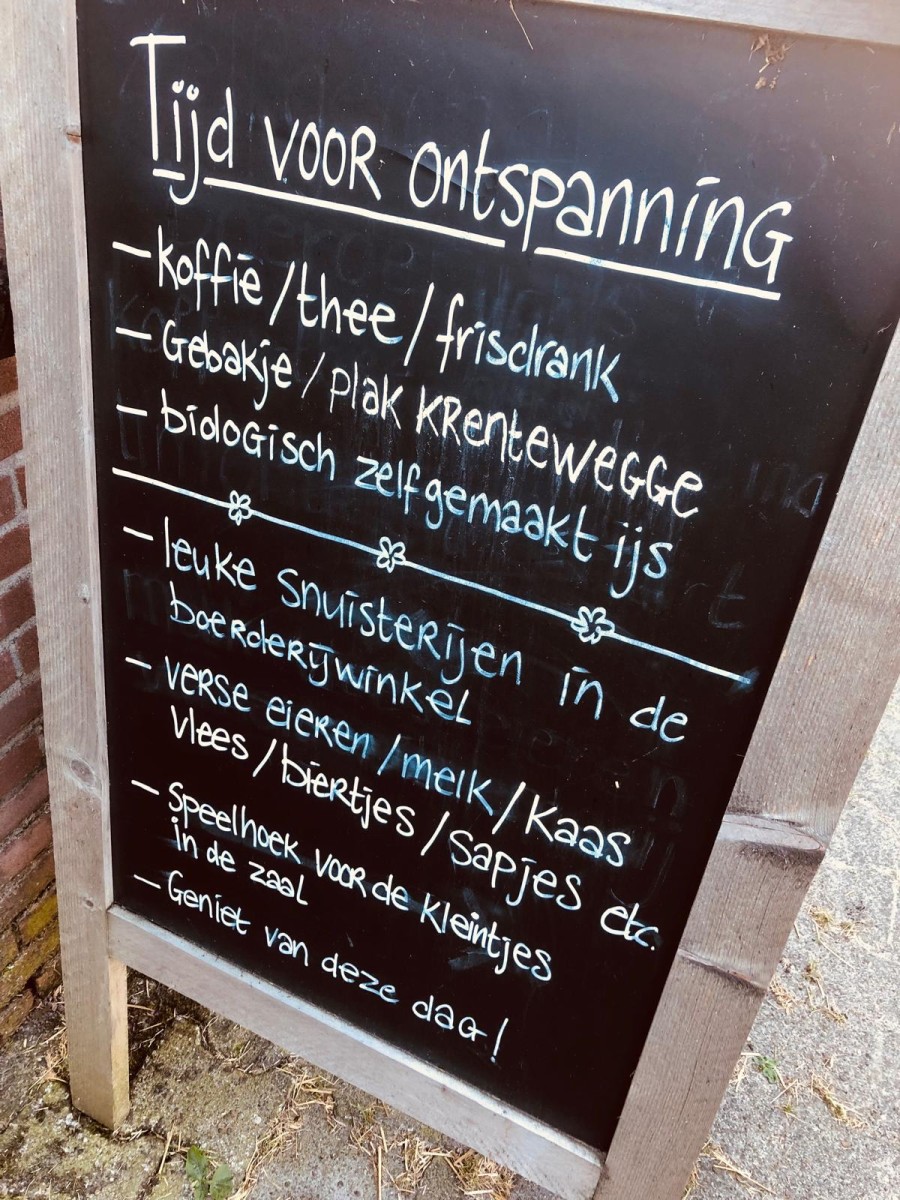 Tijd voor ontspanning
- koffie / thee / frisdrank
- Gebakje / plak krentewegge
- biologisch zelfgemaakt ijs
- leuke snuisterijen in de
boerderijwinkel
- verse eieren / melk / kaas
vlees / biertjes / sapjes etc.
- Speelhoek voor de kleintjes
in de zaal
- Geniet van deze dag!